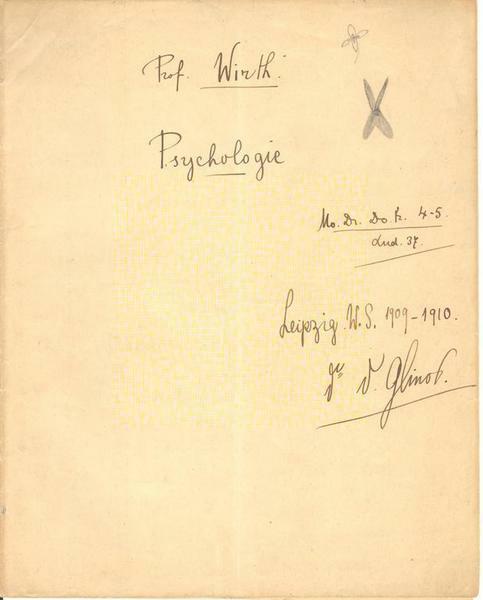 Prof. Wirth.
Psychologie
Mo. Di. Do. Fr. 4-5.
Aud. 37.
Leipzig. W.S. 1909-1910.
D. Glinos.